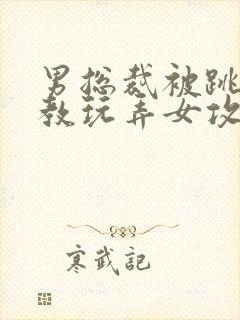 男总裁被跳
教玩弄女攻
寒武記